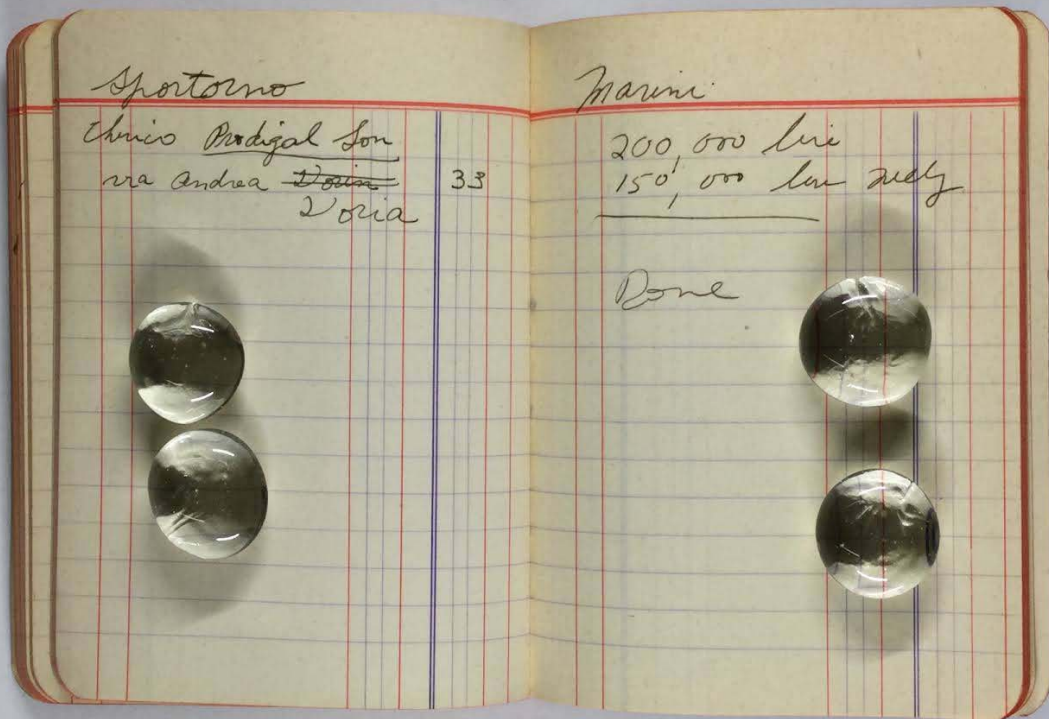 Sportorno
Chirico Prodigal Son
via Andrea Doria 33
Doria
Marini
200,000 lire
150,000 lire
Done